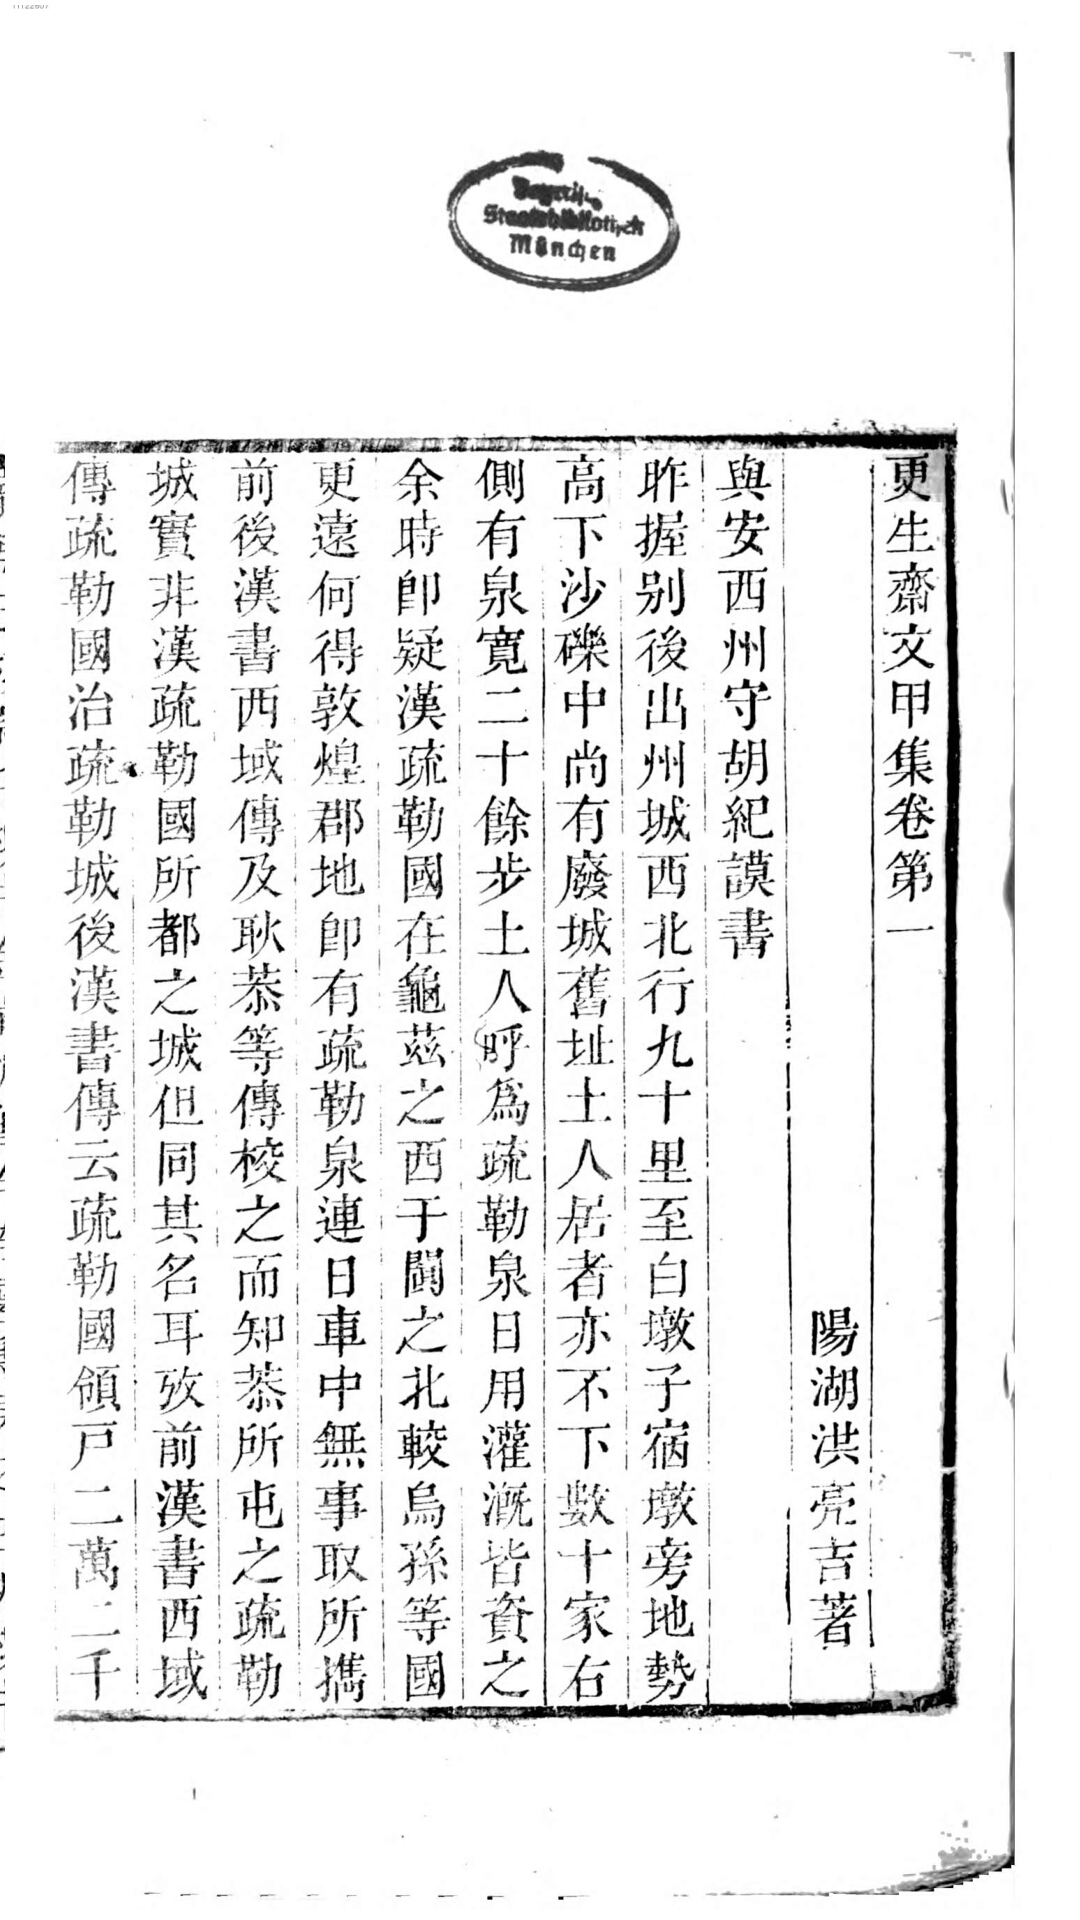 更生齋文甲集卷第一
陽湖洪亮吉著
與安西州守胡紀謨書
昨握别後出州城西北行九十里至白墩子宿墩旁地勢
高下沙礫中尚有廢城舊址土人居者亦不下數十家右
側有泉寛二十餘步土人呼爲疏勒泉日用灌漑皆資之
余時卽疑漢疏勒國在龜茲之西于闐之北較烏孫等國
更遠何得敦煌郡地卽有疏勒泉連日車中無事取所攜
前後漢書西域傳及耿恭等傳校之而知恭所屯之疏勒
城實非漢疏勒國所都之城但同其名耳攷前漢書西域
傳疏勒國治疏勒城後漢書傳云疏勒國領戸二萬二千
Staatsbibliothek
München